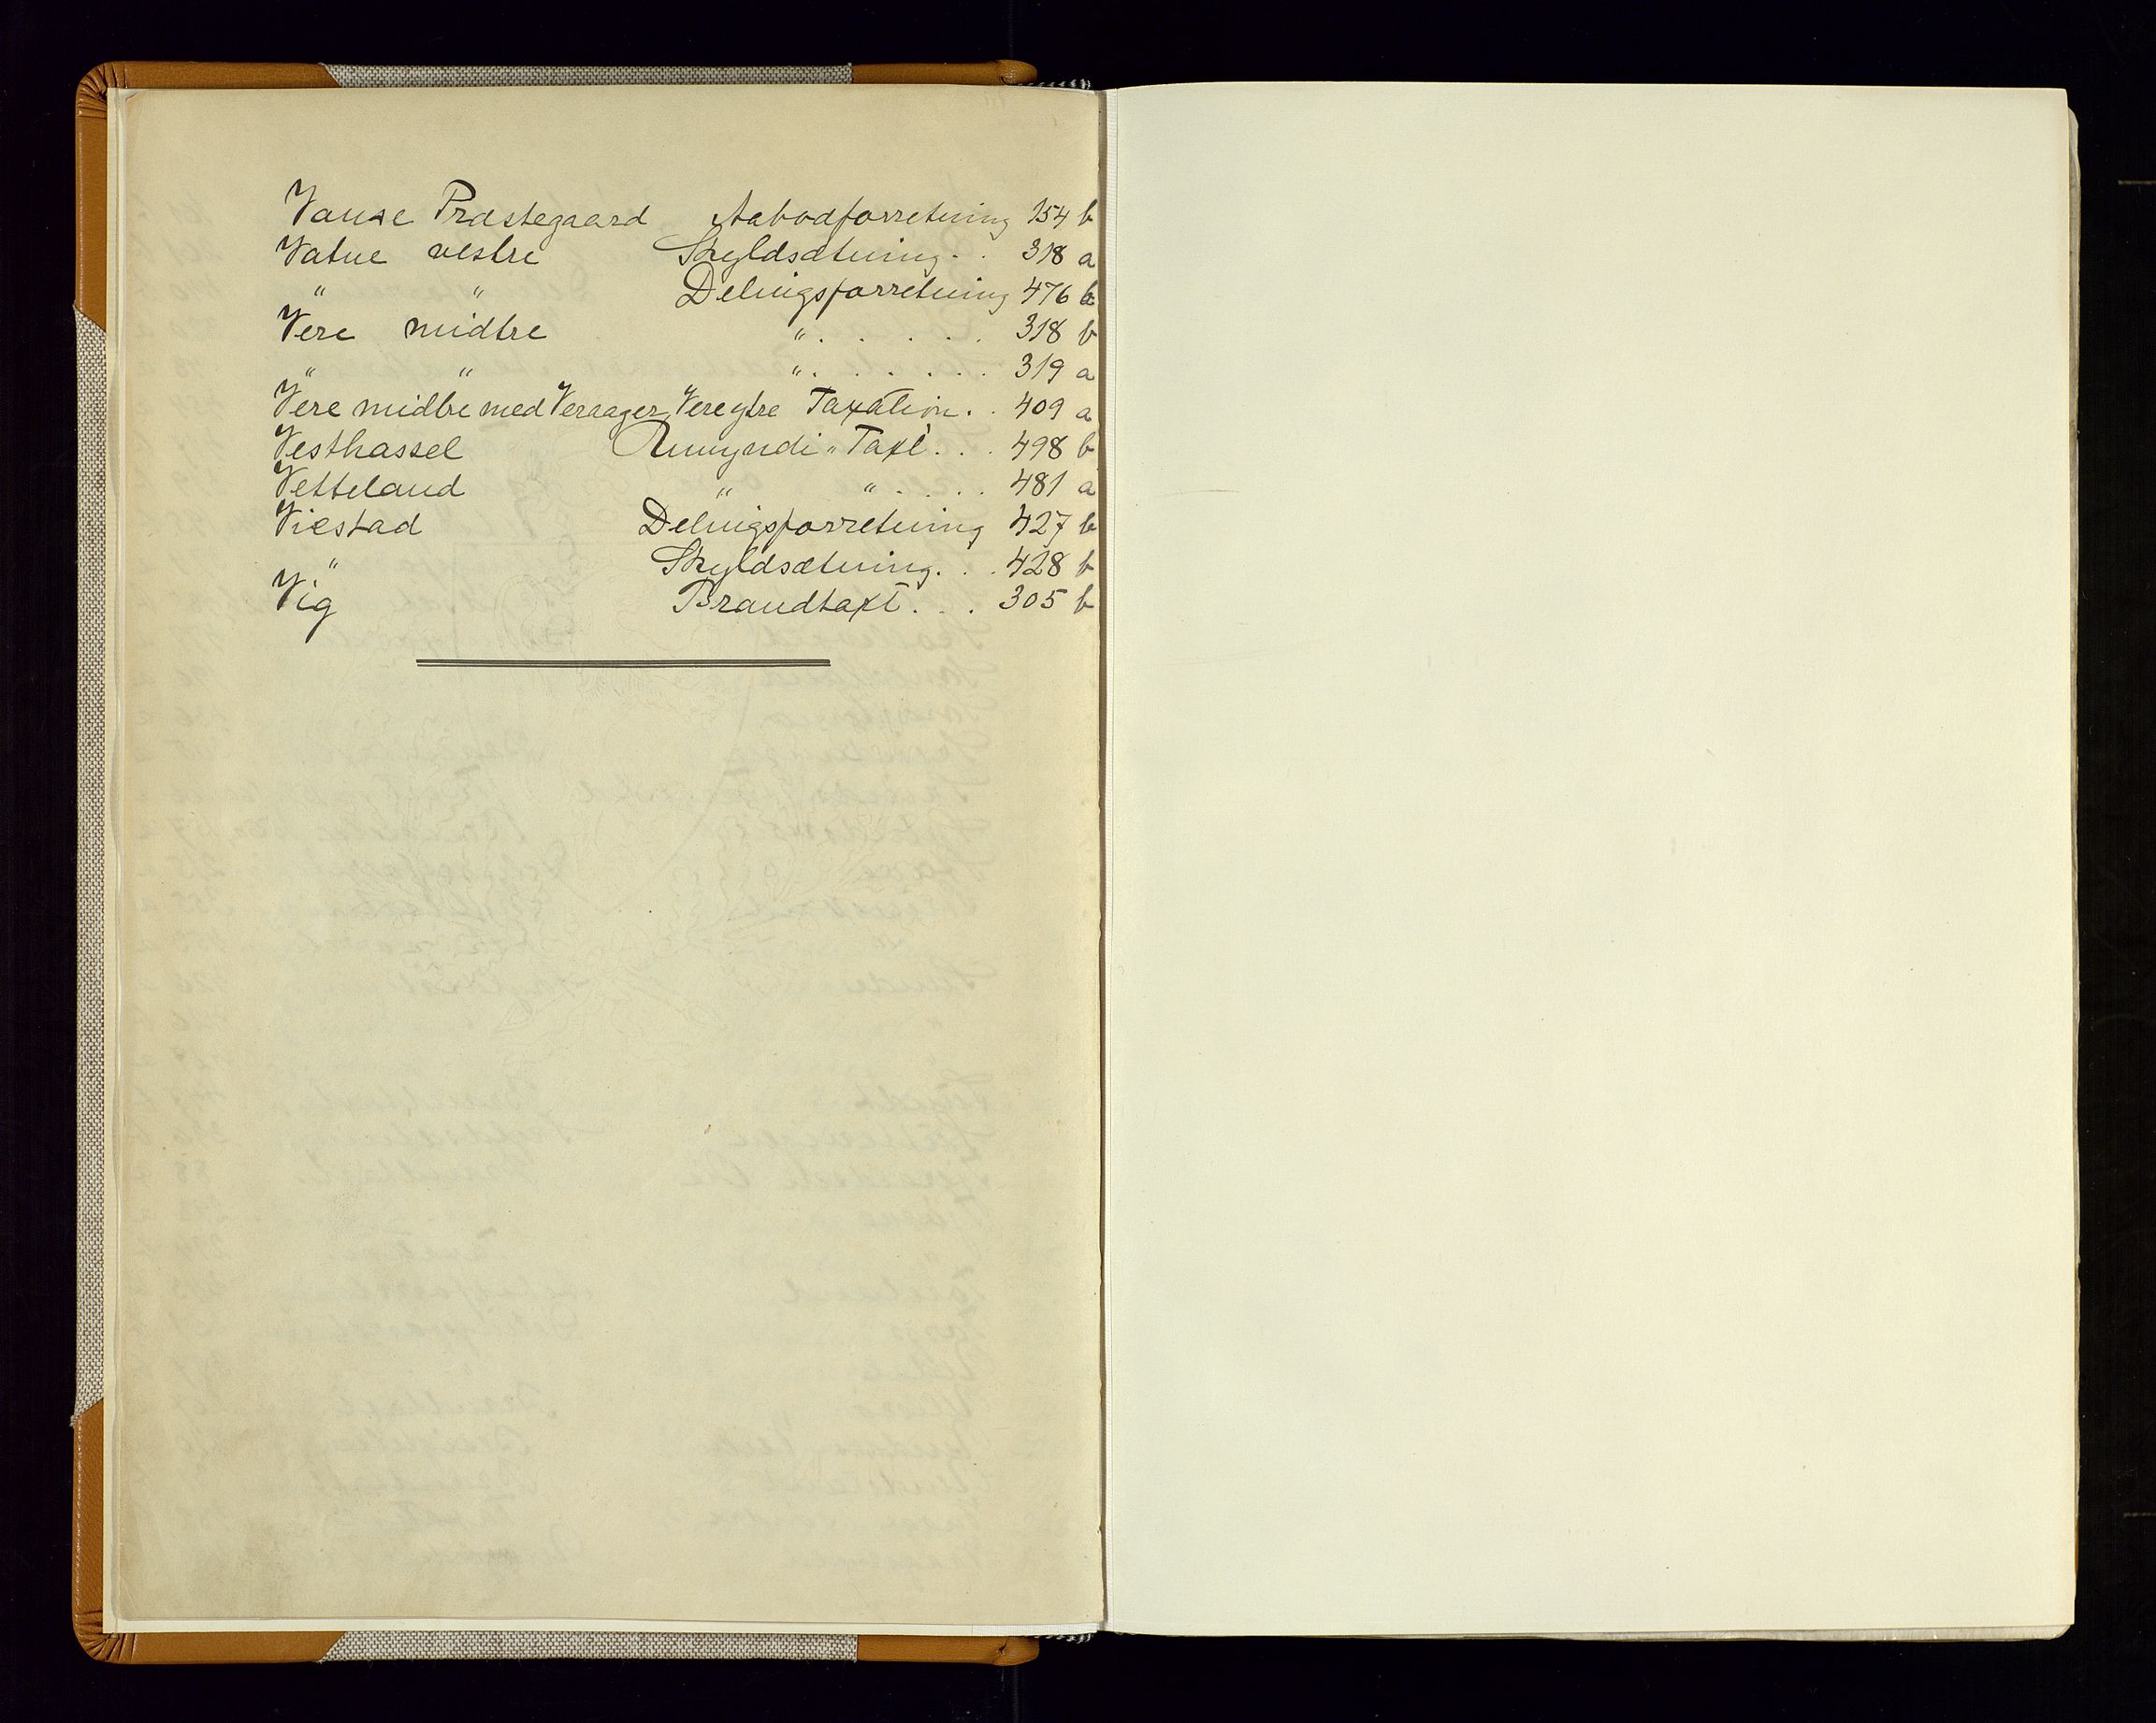 Vanse Præstegaard Aabodforretning 154 b
Vatne vestre Skyldsætning . . 318 a
" " Delingsforretning 476 a
Vere midtre " . . . . . 318 b
" " " . . . . . . 319 a
Vere midtre med Veraager, Vere ytre Taxation . . 409 a
Vesthassel Umyndi " Taxt . . . 498 b
Vetteland " " . . . . 481 a
Viestad Delingsforretning 427 b
" Skyldsætning . . . 428 b
Vig Brandtaxt . . . 305 b